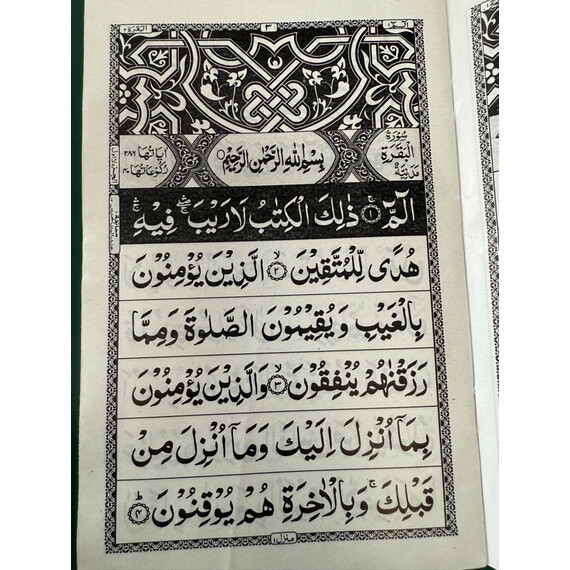 الٓمّٓ ١ ٣ البقرة ٢
سُوْرَةُ الْبَقَرَةِ مَدَنِيَّةٌ
بِسْمِ اللّٰهِ الرَّحْمٰنِ الرَّحِيْمِ
اٰيَاتُهَا ٢٨٦
رُكُوْعَاتُهَا ٤٠
الٓمّٓ ۚ﴿١﴾ ذٰلِكَ الْكِتٰبُ لَا رَيْبَ ۛۖ فِيْهِ ۛۚ
هُدًى لِّلْمُتَّقِيْنَ ۙ﴿٢﴾ الَّذِيْنَ يُؤْمِنُوْنَ
بِالْغَيْبِ وَيُقِيْمُوْنَ الصَّلٰوةَ وَمِمَّا
رَزَقْنٰهُمْ يُنْفِقُوْنَ ۙ﴿٣﴾ وَالَّذِيْنَ يُؤْمِنُوْنَ
بِمَآ اُنْزِلَ اِلَيْكَ وَمَآ اُنْزِلَ مِنْ
قَبْلِكَ ۚ وَبِالْاٰخِرَةِ هُمْ يُوْقِنُوْنَ ؕ﴿٤﴾
منزل ١